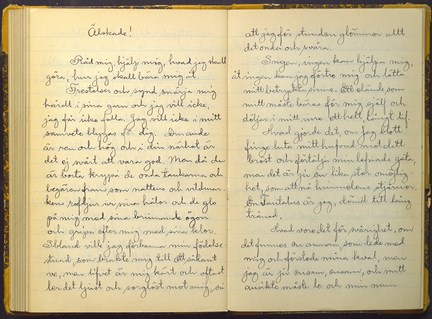 Älskade!
Råd mig, hjälp mig, hvad jag skall
göra, hur jag skall bära mig åt.
Frestelser och synd snärja mig
härdt i sina garn och jag vill icke,
jag får icke falla. Jag vill icke i mitt
samvete blygas för dig. Din ande
är ren och hög och i din närhet är
det ej svårt att vara god. Men då du
är borta krypa de onda tankarna och
begären fram som nattens och vildmar-
kens rofdjur ur sina hålor och de glo
på mig med sina brinnande ögon
och gripa efter mig med sina klor.
Ibland vill jag förbanna min födelse-
stund, som bragte mig till ett sådant
ve, men lifvet är mig kärt och oftast
ler det ljust och sorglöst mot mig, så
att jag för stunden glömmer allt
det onda och svåra.
Ingen, ingen kan hjälpa mig,
åt ingen kan jag förtro mig och lätta
mitt betryckta sinne. Ett elände som
mitt måste bäras för mig själf och
döljas i mitt inre ett helt långt lif.
Hvad gjorde det, om jag blott
finge luta mitt hufvud mot ditt
bröst och förtälja min lefnads gåta,
men det är ju en lika stor omöjlig-
het, som att nå himmelens stjärnor.
En Tantalus är jag, dömd till evig
trånad.
Hvad vore det för svårighet, om
det funnes en annan, som lede med
mig och förstode mina kval, men
jag är ju ensam, ensam, och mitt
ansikte måste le och min mun